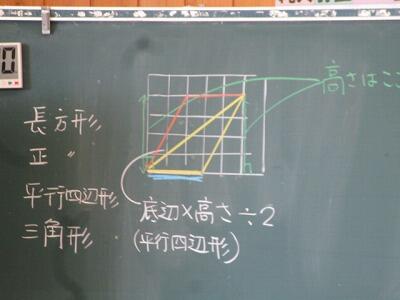 高さはここ
長方形
正 〃
平行四辺形
三角形
底辺×高さ÷2
(平行四辺形)
0